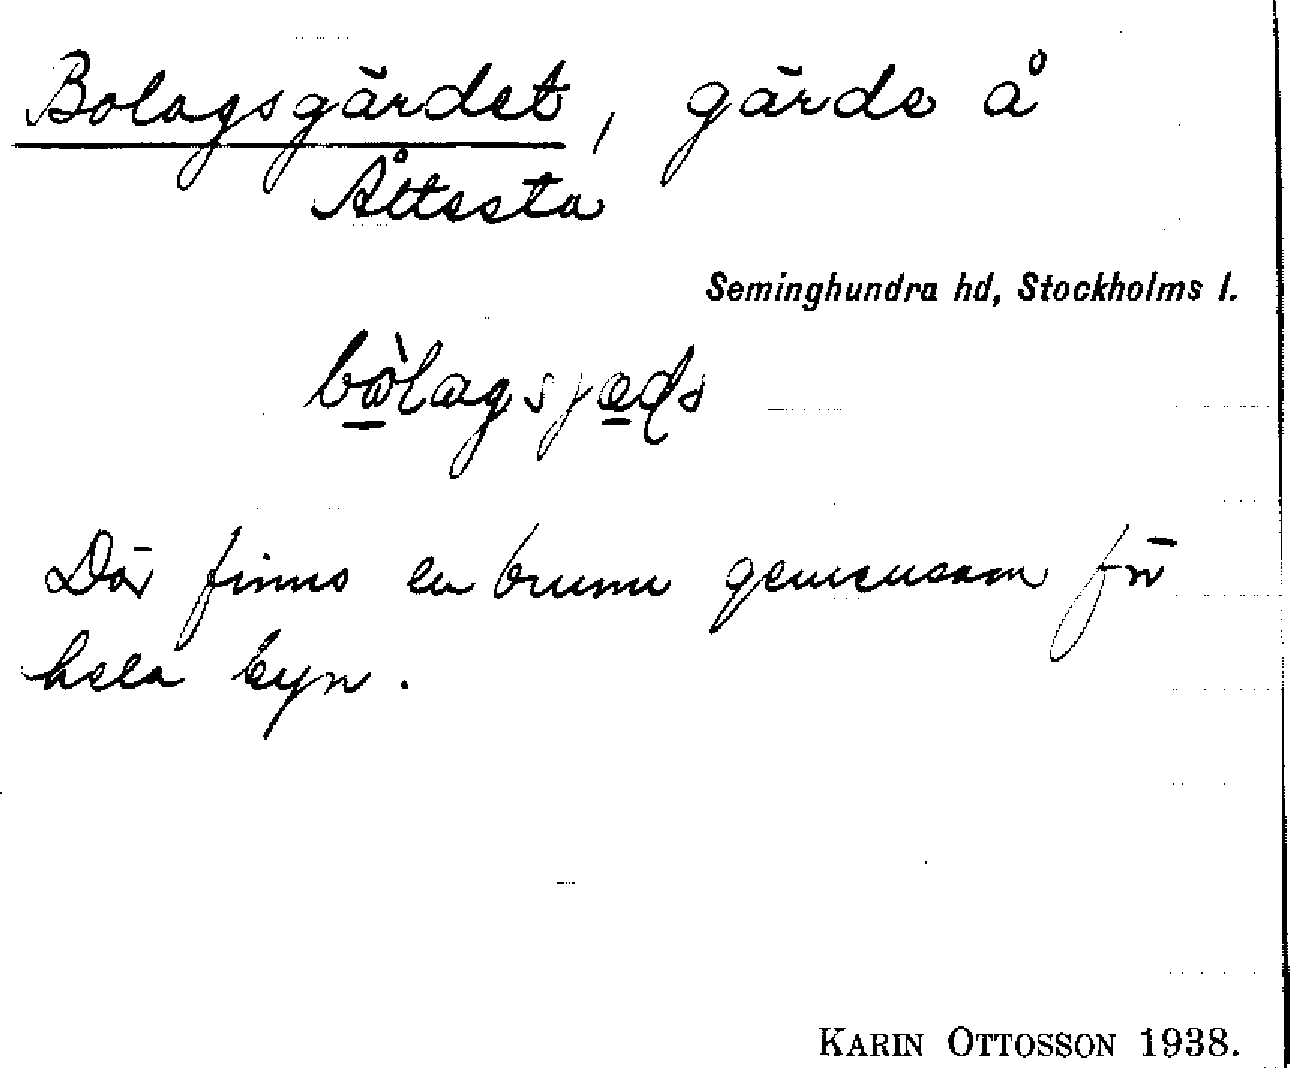 Bolagsgärdet, gärde å
Åttesta
Seminghundra hd, Stockholms l.
bòlagsjæds
Där finns en brunn gemensam för
hela byn.
KARIN OTTOSSON 1938.